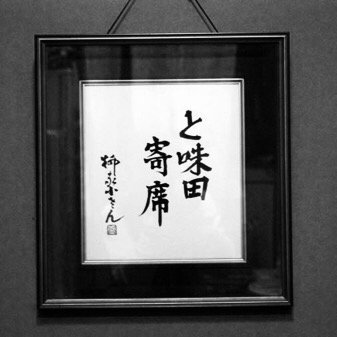 と味田
寄席
柳家小さん